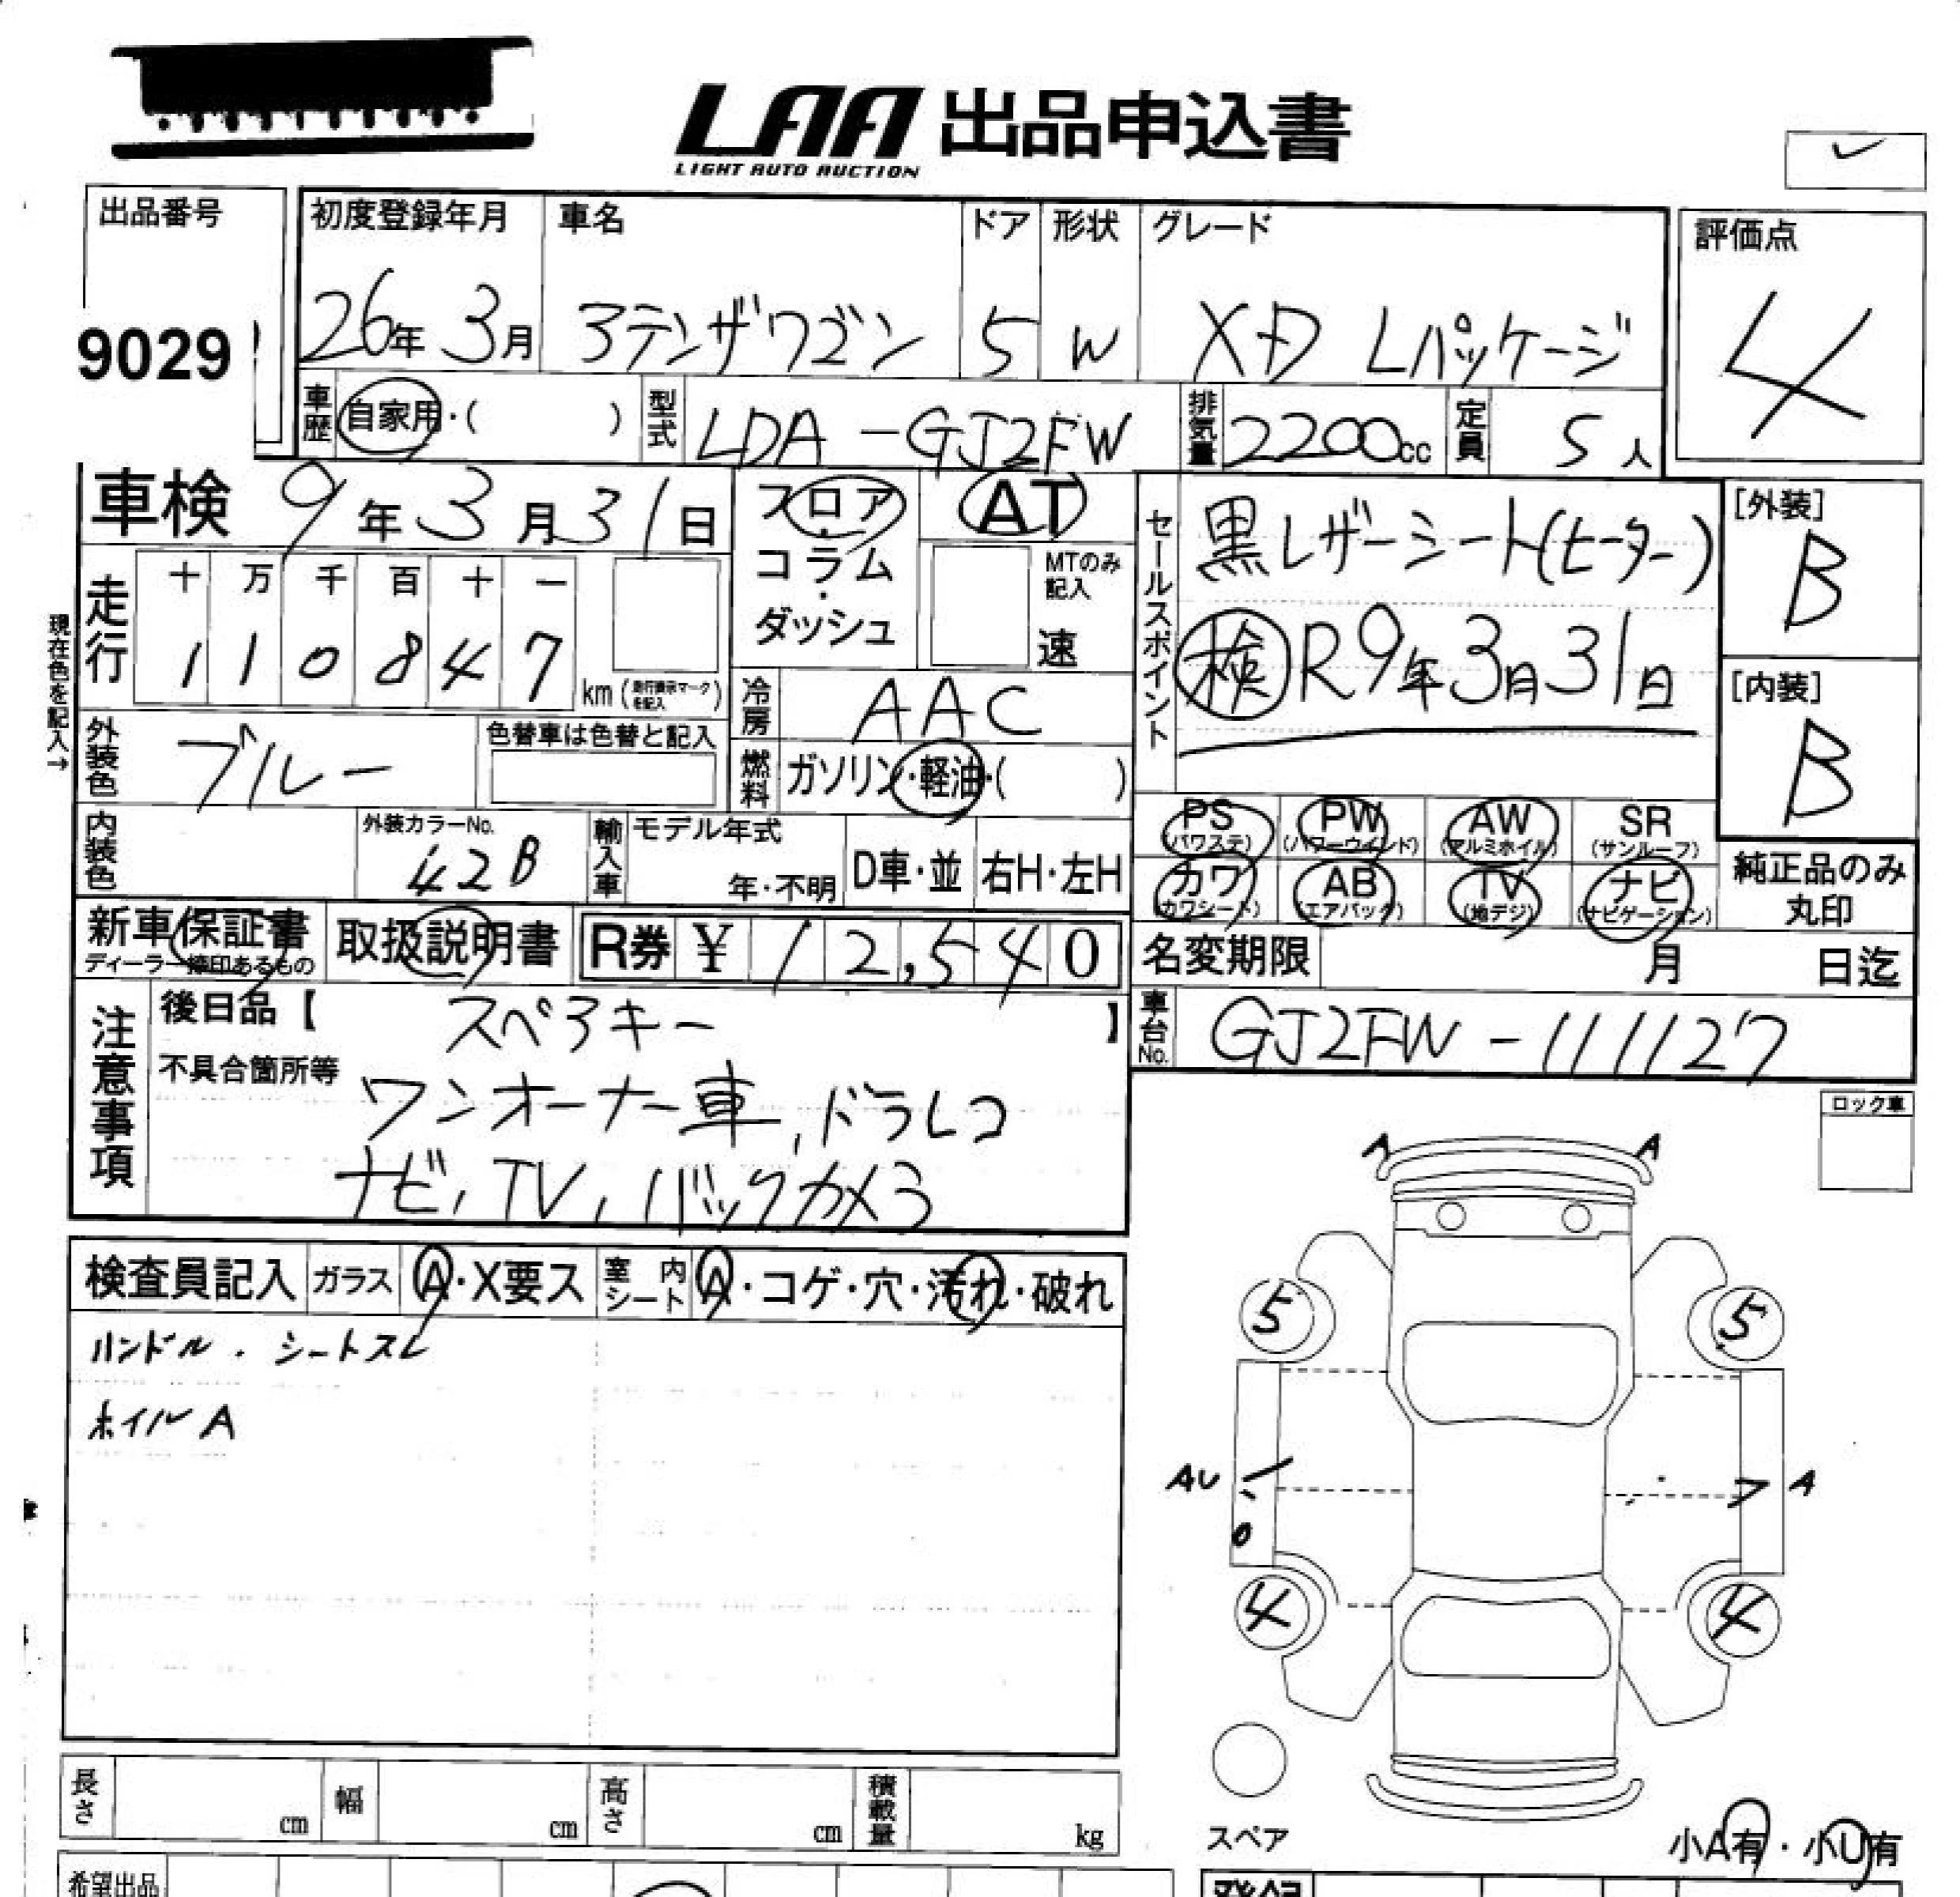 LAA 出品申込書
LIGHT AUTO AUCTION
出品番号
9029
初度登録年月
26年 3月
車名
アテンザワゴン
ドア
5
形状
W
グレード
XD Lパッケージ
評価点
4
車歴
自家用・( )
型式
LDA-GJ2FW
排気量
2200cc
定員
5人
車検 9年3月31日
スロア
コラム
ダッシュ
AT
MTのみ記入
速
セールスポイント
黒レザーシート(ヒーター)
検 R9年3月31日
[外装]
B
[内装]
B
現在色を記入→
走行
十 万 千 百 十 一
1 1 0 8 4 7
km
冷房
AAC
外装色
ブルー
色替車は色替と記入
燃料
ガソリン・軽油・( )
内装色
外装カラーNo.
42B
輸入車
モデル年式
年・不明
D車・並
右H・左H
PS (パワステ)
PW (パワーウィンド)
AW (アルミホイル)
SR (サンルーフ)
カワ (カワシート)
AB (エアバック)
TV (地デジ)
ナビ (ナビゲーション)
純正品のみ
丸印
新車保証書
ディーラー捺印あるもの
取扱説明書
R券 ¥ 12,540
名変期限 月 日迄
注意事項
後日品【 スペアキー 】
不具合箇所等
ワンオーナー車、ドラレコ
ナビ、TV、バックカメラ
車台No.
GJ2FW-111127
ロック車
A A
検査員記入
ガラス
A・X要ス
室内シート
A・コゲ・穴・汚れ・破れ
ハンドル・シートスレ
ホイルA
5 5
AU A
4 4
長さ cm
幅 cm
高さ cm
積載量 kg
スペア
小A有・小U有
希望出品